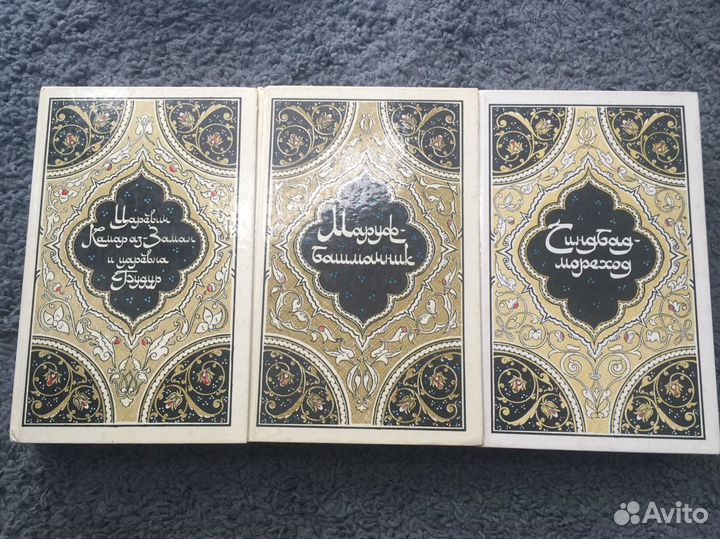 Царевич
Камар аз-Заман
и царевна
Будур
Маруф-
башмачник
Синдбад-
мореход
Avito